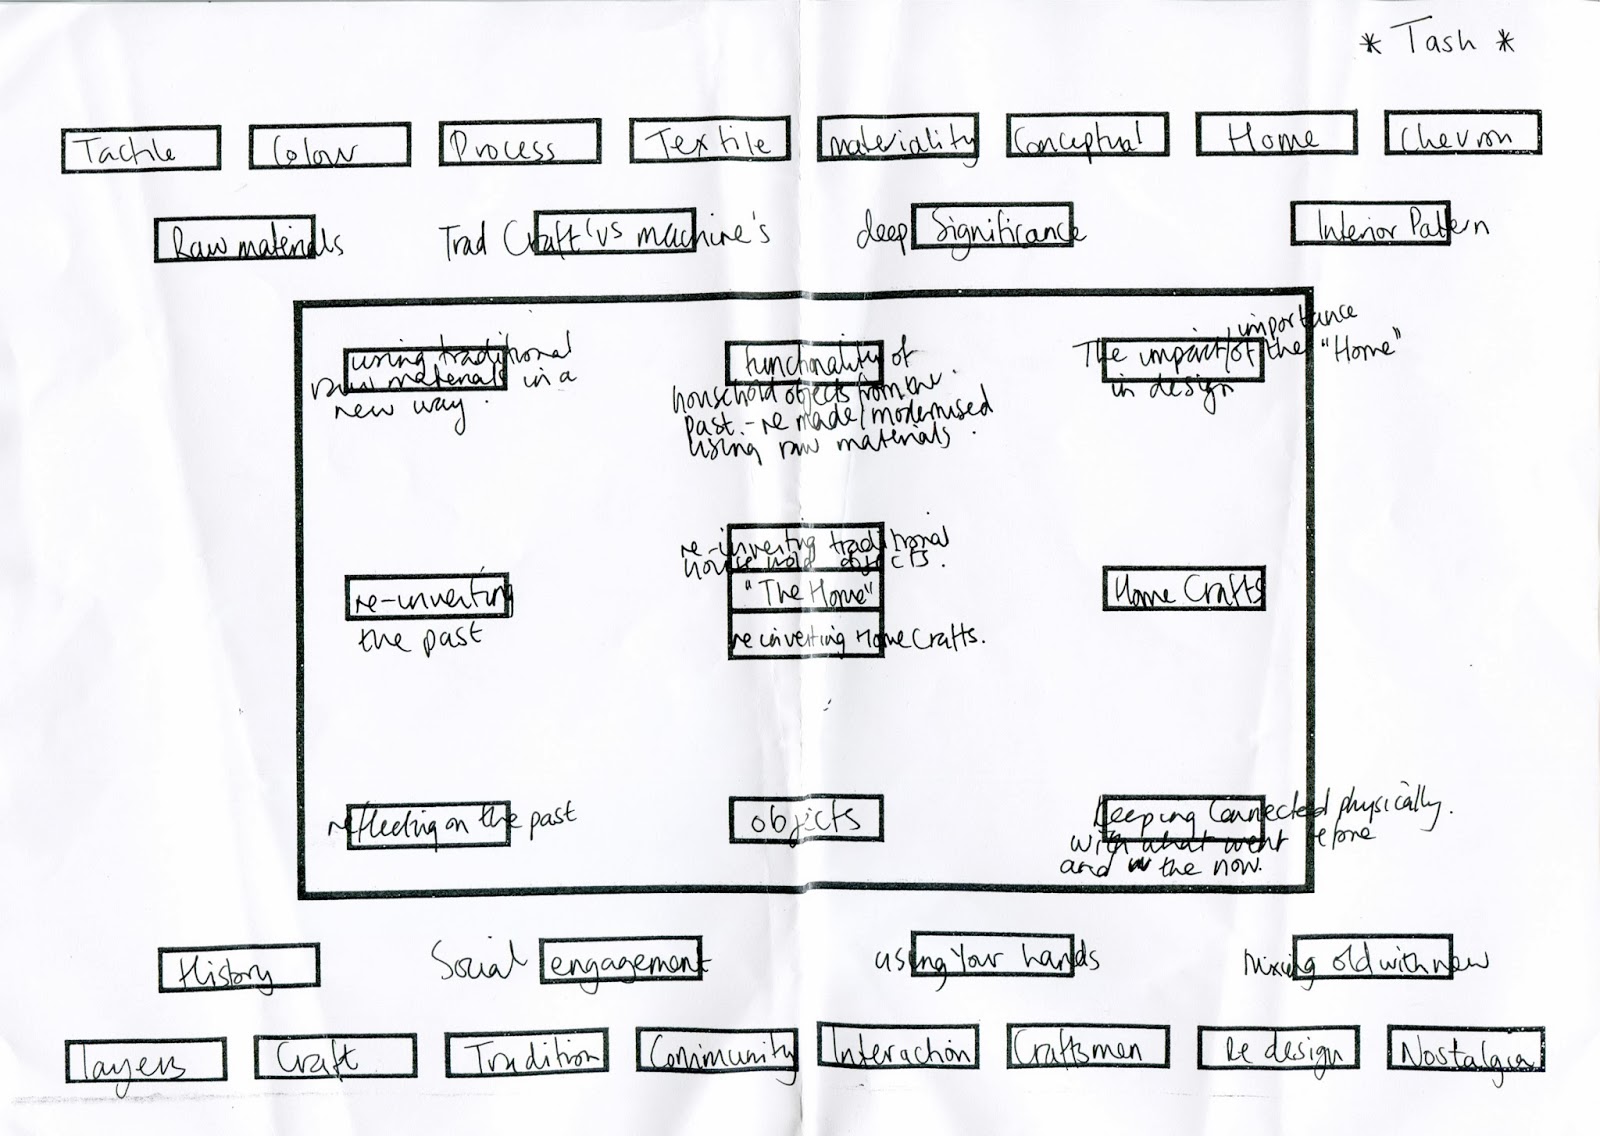 * Tash *
Tactile
Colour
Process
Textile
materiality
Conceptual
Home
Chevron
Raw materials
Trad Craft 'vs machine's
deep Significance
Interior Pattern
using traditional
raw materials in a
new way.
functionality of
household objects from the
past. - re made / modernised
using raw materials.
importance
The impact / of the "Home"
in design
re-inventing traditional
house hold objects.
"The Home"
re inventing Home Crafts.
re-inventing
the past
Home Crafts
reflecting on the past
objects
keeping Connected physically.
with what went before
and in the now.
History
Social engagement
using Your hands
Mixing old with new
layers
Craft
Tradition
Community
Interaction
Craftsmen
Re design
Nostalgia